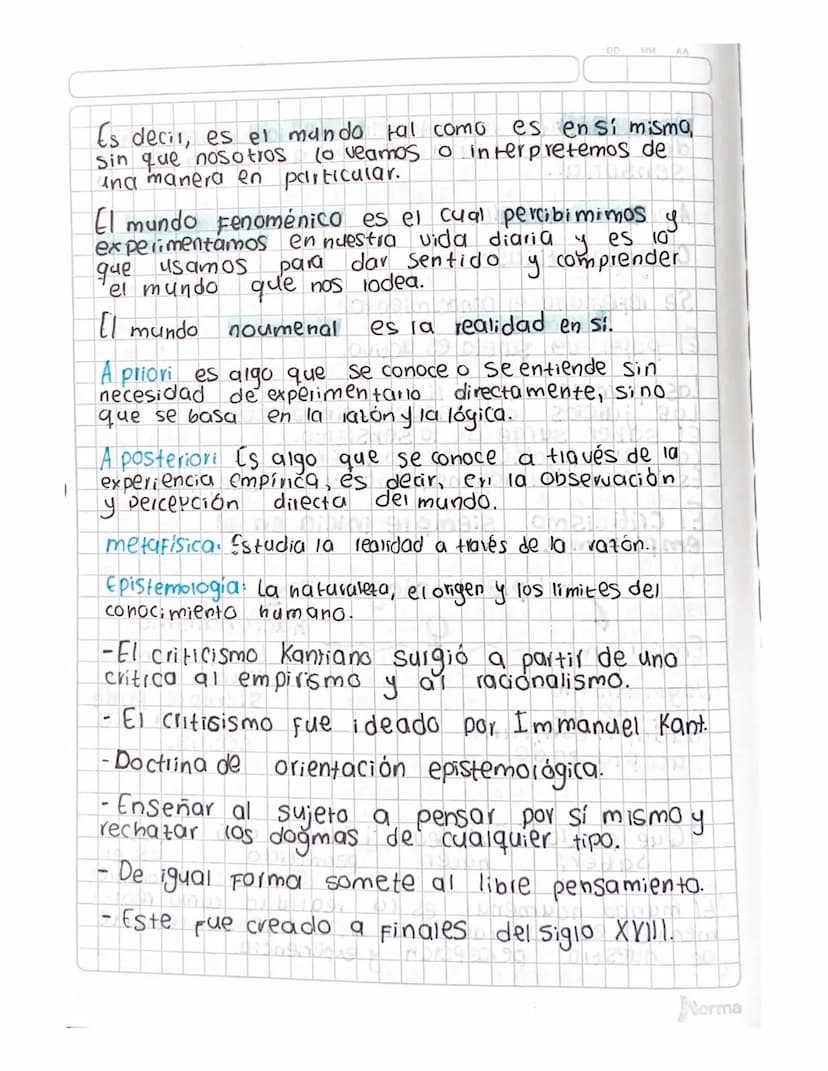 DD MM AA
Es decir, es el mundo tal como es en sí mismo,
sin que nosotros lo veamos o interpretemos de
una manera en particular.
El mundo fenoménico es el cual percibimimos y
experimentamos en nuestra vida diaria y es lo
que usamos para dar sentido y comprender
el mundo que nos rodea.
El mundo noumenal es la realidad en sí.
A priori es algo que se conoce o se entiende sin
necesidad de experimentarlo directamente, sino
que se basa en la razón y la lógica.
A posteriori Es algo que se conoce a través de la
experiencia empírica, es decir, en la observación
y percepción directa del mundo.
metafísica: Estudia la realidad a través de la razón.
Epistemología: La naturaleza, el origen y los limites del
conocimiento humano.
-El criticismo Kantiano surgió a partir de una
crítica al empirismo y al racionalismo.
- El critisismo fue ideado por Immanuel Kant.
-Doctrina de orientación epistemológica.
-Enseñar al sujeto a pensar por sí mismo y
rechazar los dogmas de cualquier tipo.
- De igual forma somete al libre pensamiento.
-Este fue creado a finales del siglo XVIII.
Norma